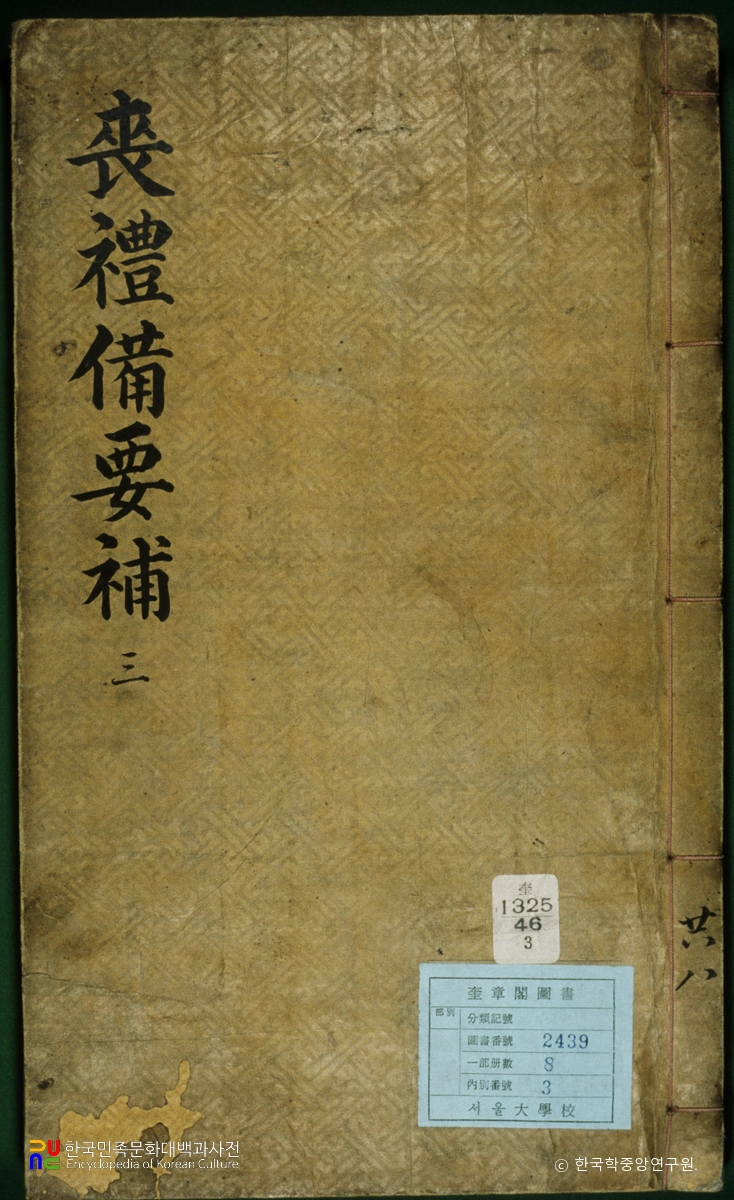 喪禮備要補
三
共八
奎
1325
46
3
奎章閣圖書
部別
分類記號
圖書番號 2439
一部册數 8
內別番號 3
서울大學校
한국민족문화대백과사전
Encyclopedia of Korean Culture
© 한국학중앙연구원